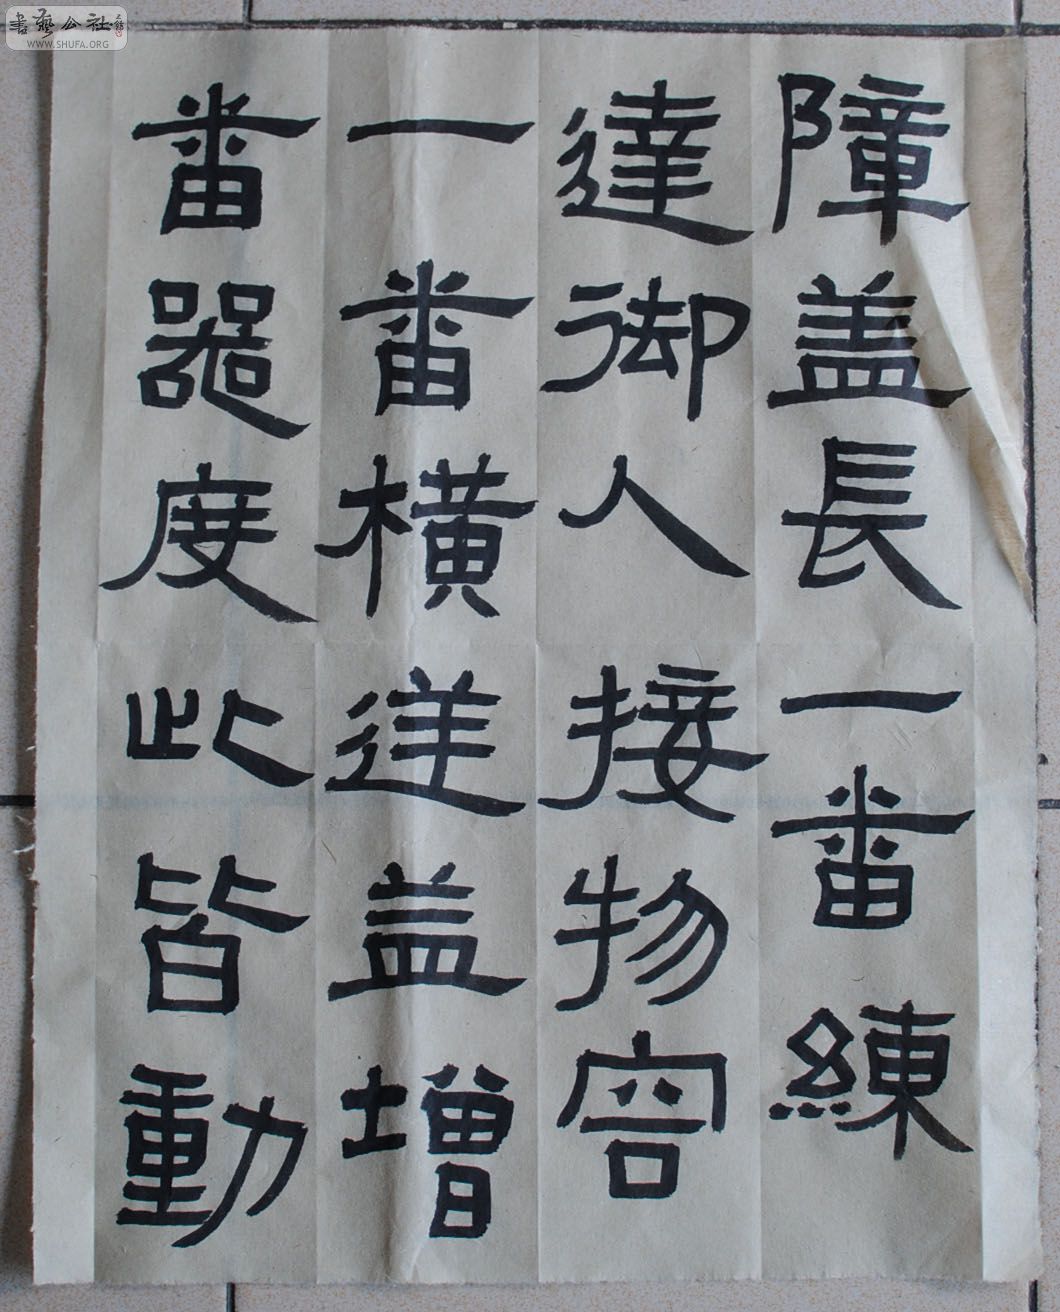 障盖長一番練
達御人接物容
一番橫逆益增
番器度此皆動
書藝公社
WWW.SHUFA.ORG